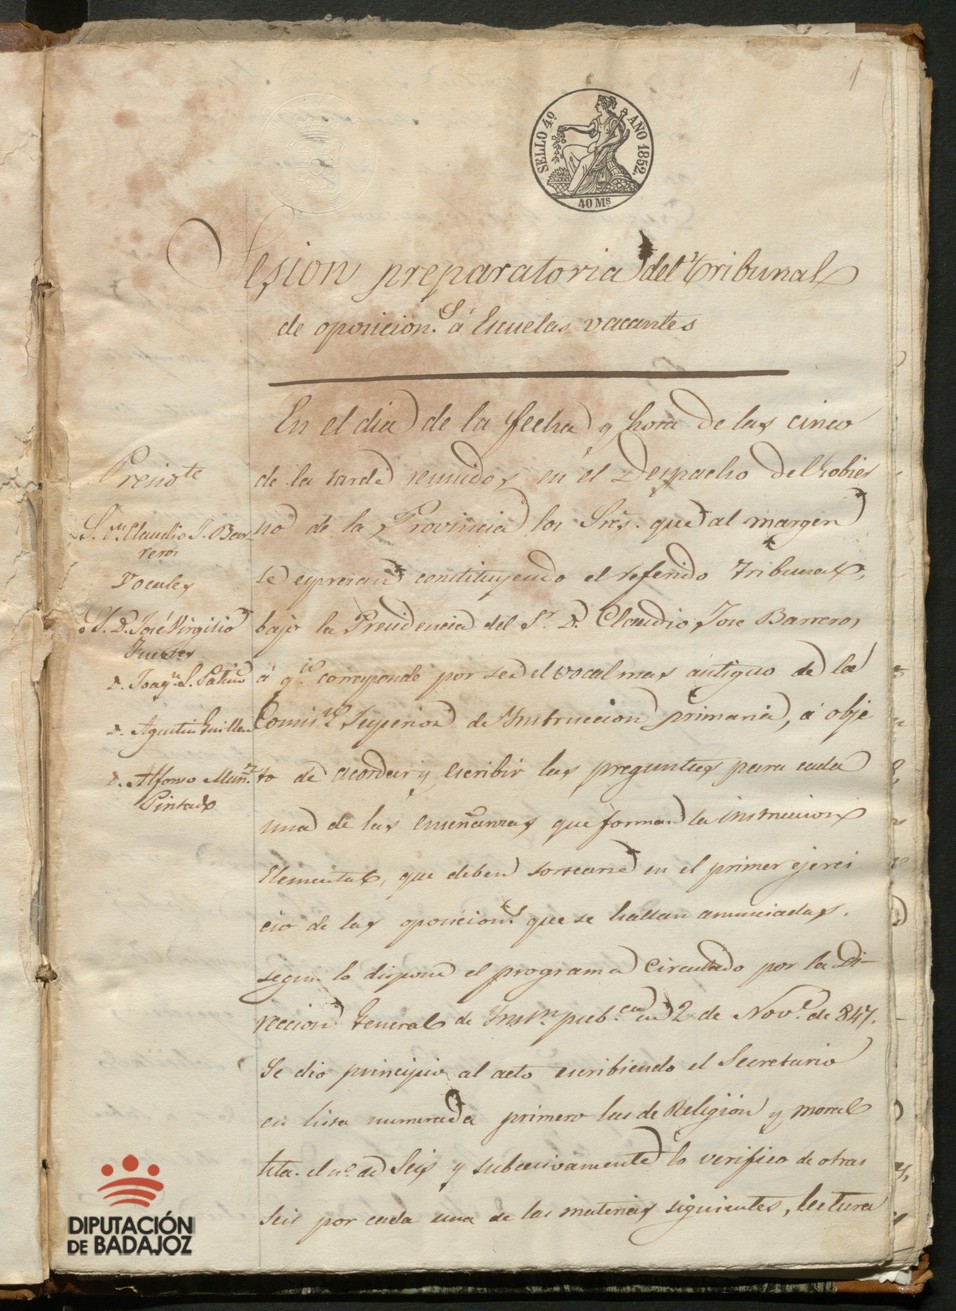 1
SELLO 4º AÑO 1852.
40 Ms
Sesion preparatoria del Tribunal
de oposicion.s á Escuelas vacantes
En el dia de la fecha y hora de las cinco
de la tarde reunidos en el Despacho del Gobier
no de la Provincia los Sres. que al margen
se espresan constituyendo el referido Tribunal,
bajo la Presidencia del Sr. D. Claudio Jose Barreros
á qn. corresponde por ser el vocal mas antiguo de la
Comisn. Superior de Instruccion primaria, á obje
to de acordar y escribir las preguntas para cada
una de las enseñanzas que forman la instruccion
Elemental, que deben sortearse en el primer ejerci
cio de las oposicions. que se hallan anunciadas.
segun lo dispone el programa circulado por la Di-
reccion General de Instn. pubca. en 2 de Nove. de 847.
Se dio principio al acto escribiendo el Secretario
en lista numerada primero las de Religion y moral
hta. el no. de Seis y subcesivamente lo verifico de otras
seis por cada una de las materias siguientes, lectura
Presidte
S. D. Claudio J. Bar-
reros
Vocales
S. D. José Virgilio
D. Joaqn. S. Patiño
D. Agustin Guillen
D. Alfonso Muñz
Pintado
DIPUTACIÓN
DE BADAJOZ